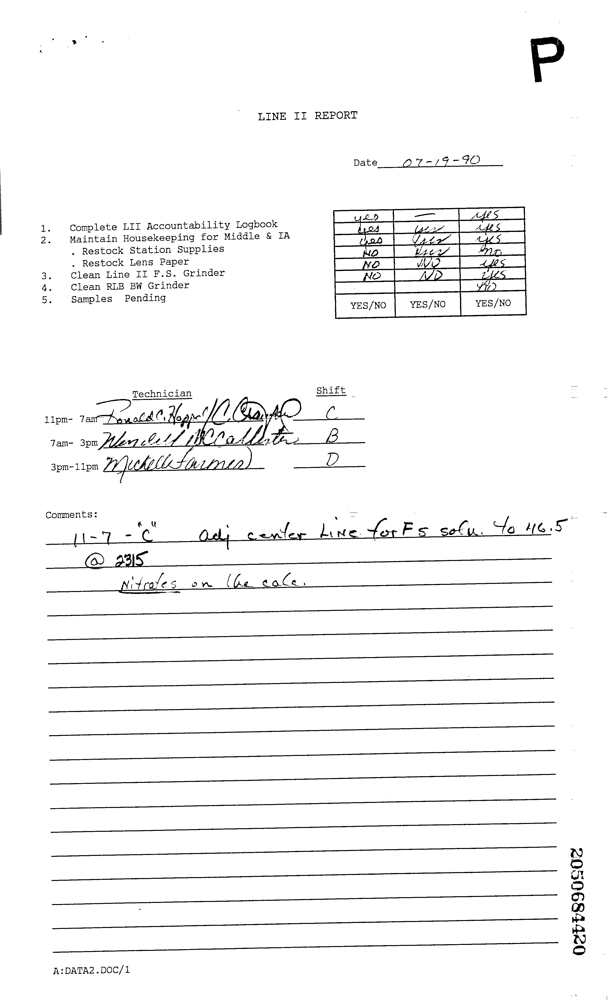 P
LINE II REPORT
Date 07-19-90
1. Complete LII Accountability Logbook
2. Maintain Housekeeping for Middle & IA
. Restock Station Supplies
. Restock Lens Paper
3. Clean Line II F.S. Grinder
4. Clean RLB BW Grinder
5. Samples Pending
yes — yes
yes yes yes
yes yes yes
NO no
NO NO yes
NO NO yes
YES/NO YES/NO YES/NO
Technician Shift
11pm- 7am Ronald C. C
7am- 3pm Wendell McCallister B
3pm-11pm Michelle Farmer D
Comments:
11-7 - "C" adj center Line for FS solu. to 46.5
@ 2315
Nitrates on the calc.
2050684420
A:DATA2.DOC/1